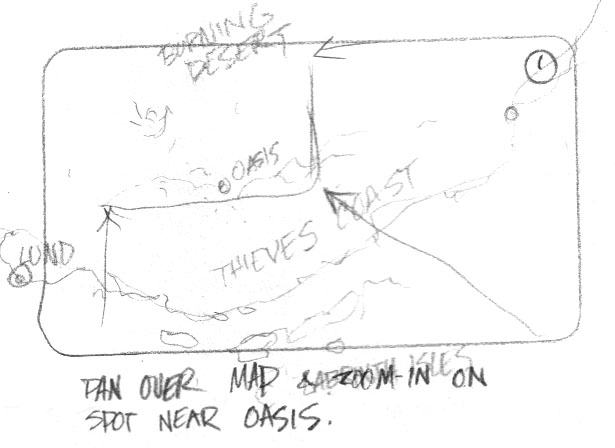 BURNING
DESERT
1
OASIS
THIEVES COAST
LUND
SABERTOOTH ISLES
PAN OVER MAP & ZOOM-IN ON
SPOT NEAR OASIS.